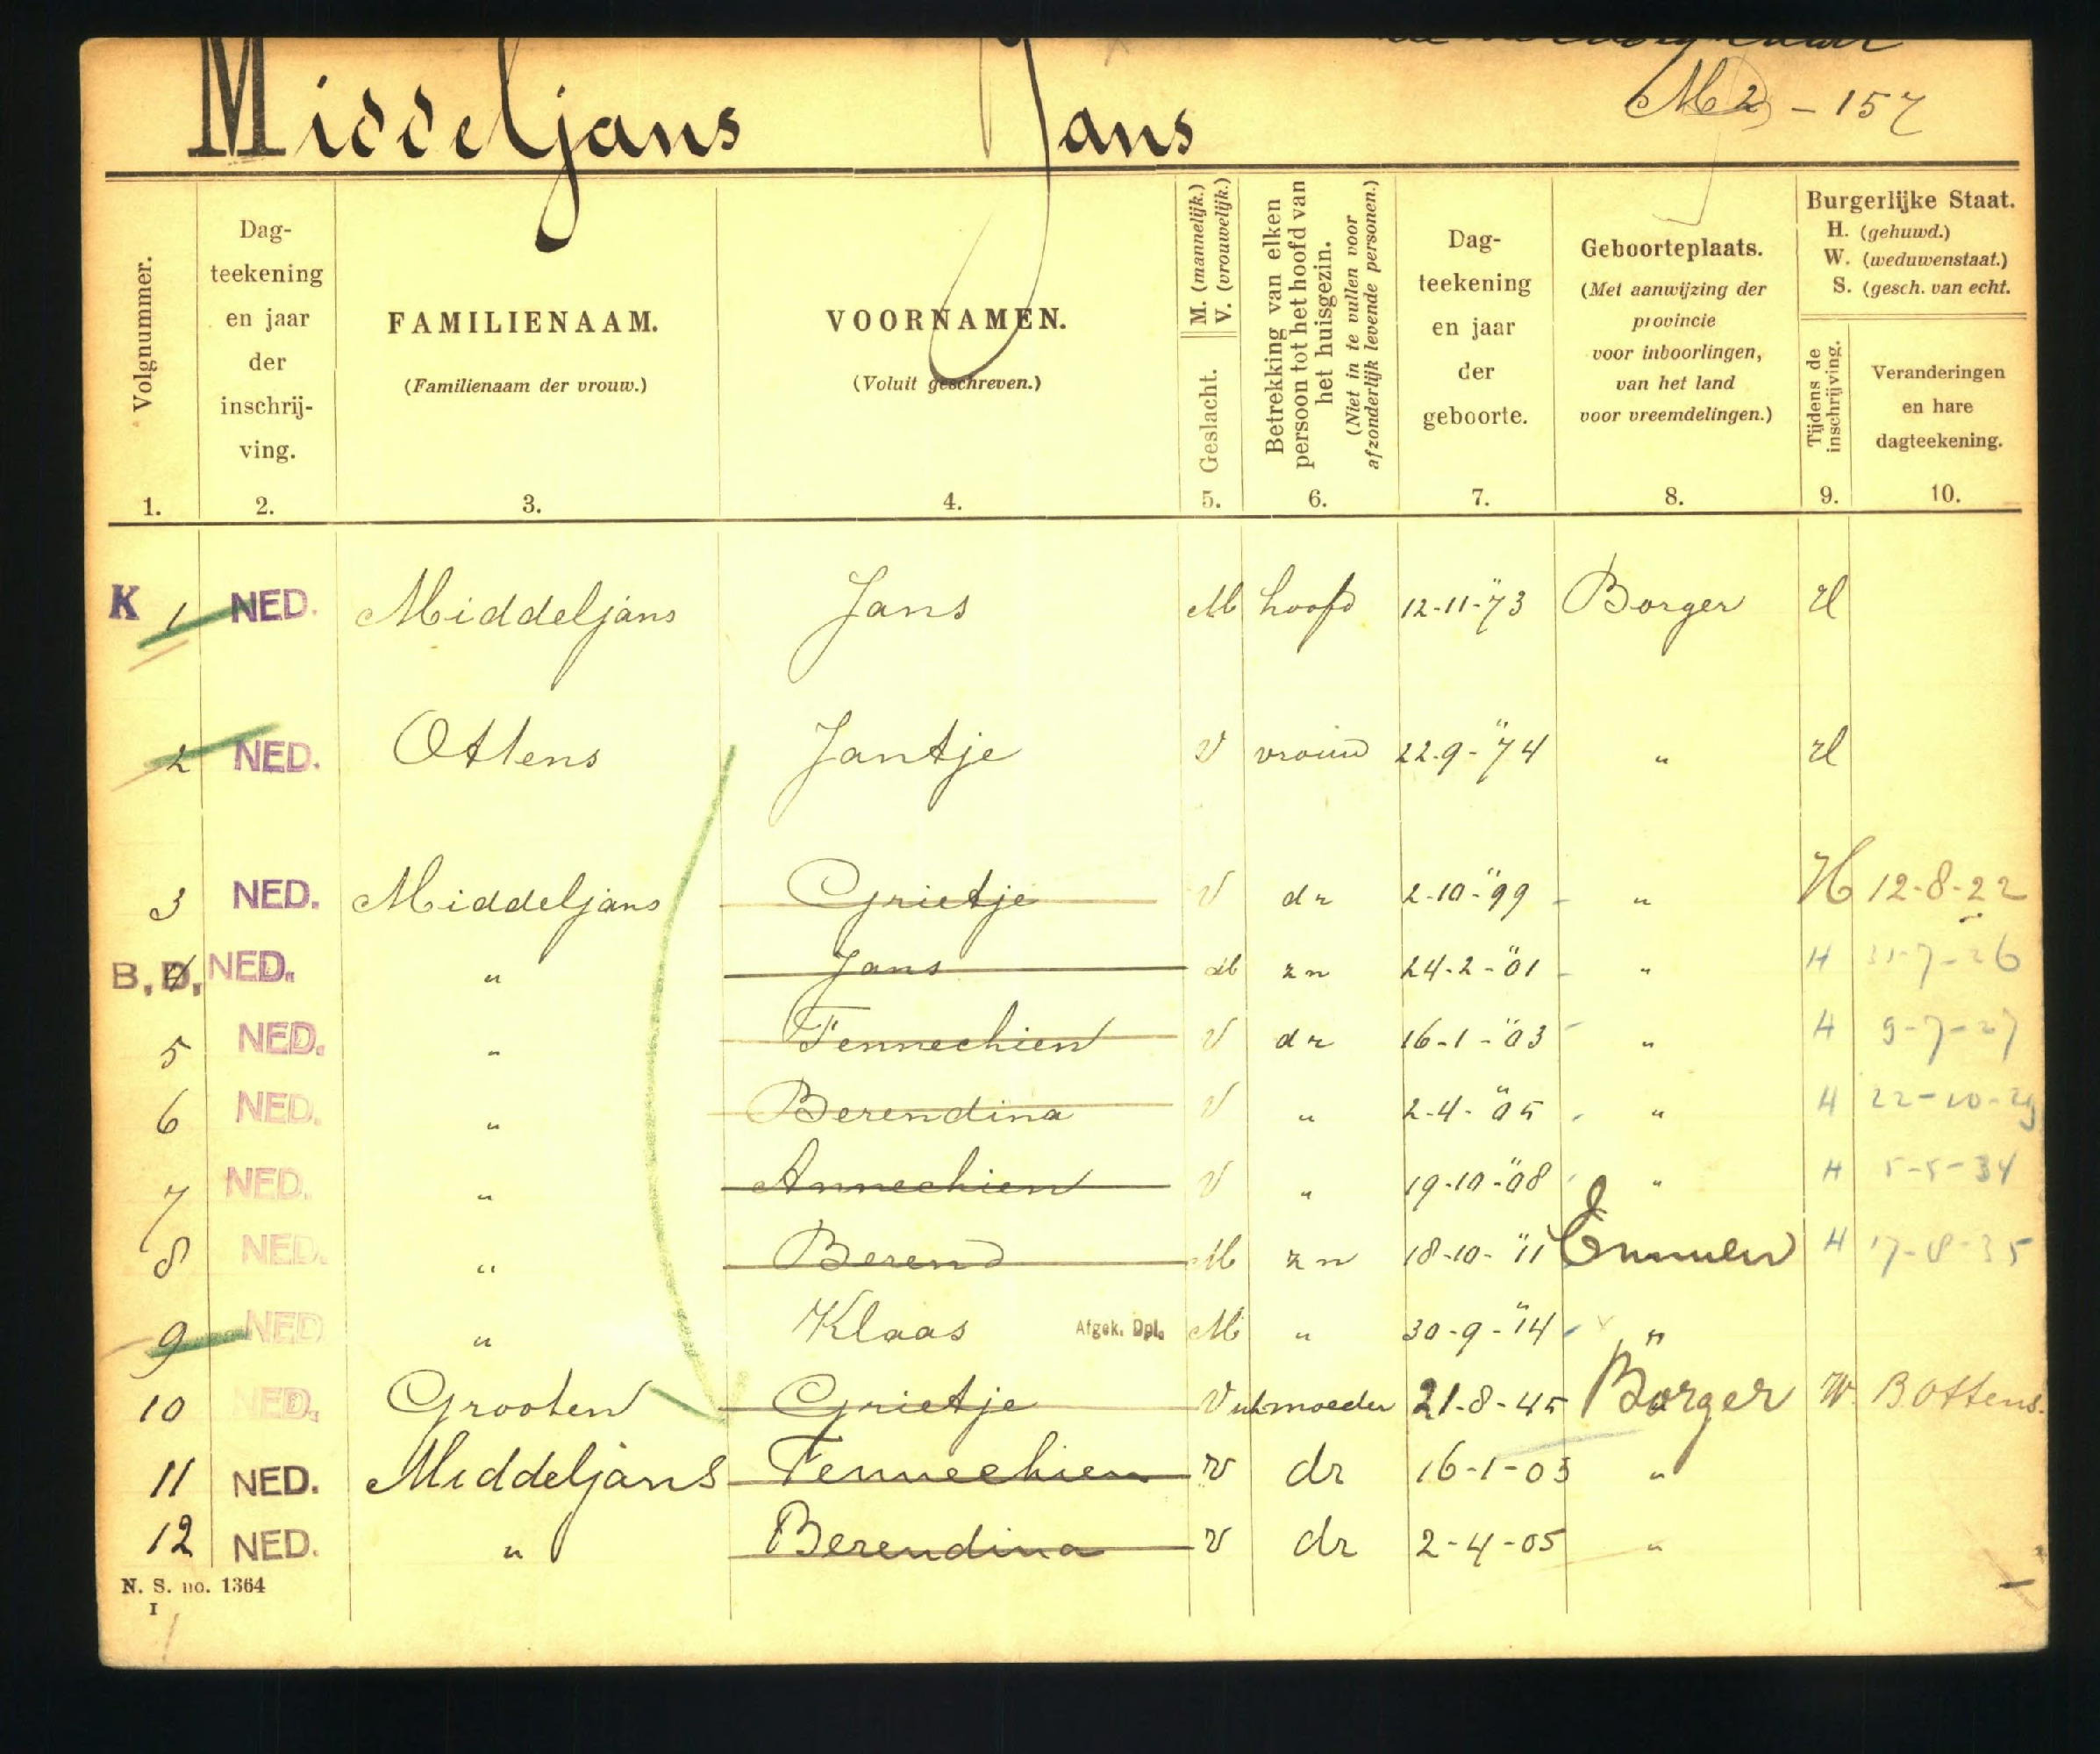 Middeljans Jans
M2 - 157
Volgnummer.
Dag-
teekening
en jaar
der
inschrij-
ving.
FAMILIENAAM.
(Familienaam der vrouw.)
VOORNAMEN.
(Voluit geschreven.)
Geslacht.
M. (mannelijk.)
V. (vrouwelijk.)
Betrekking van elken
persoon tot het hoofd van
het huisgezin.
(Niet in te vullen voor
afzonderlijk levende personen.)
Dag-
teekening
en jaar
der
geboorte.
Geboorteplaats.
(Met aanwijzing der
provincie
voor inboorlingen,
van het land
voor vreemdelingen.)
Burgerlijke Staat.
H. (gehuwd.)
W. (weduwenstaat.)
S. (gesch. van echt.
Tijdens de
inschrijving.
Veranderingen
en hare
dagteekening.
1. 2. 3. 4. 5. 6. 7. 8. 9. 10.
K 1 NED. Middeljans Jans M hoofd 12-11-"73 Borger H
2 NED. Ottens Jantje V vrouw 22.9-"74 " H
3 NED. Middeljans Grietje V dr 2-10-"99 - " H 12-8-22
B, D, 4 NED. " Jans M zn 24-2-"01 - " H 31-7-26
5 NED. " Fennechien V dr 16-1-"03 - " H 9-7-27
6 NED. " Berendina V " 2-4-"05 " H 22-10-29
7 NED. " Annechien V " 19-10-"08 " H 5-5-34
8 NED. " Berend M zn 18-10-"11 Emmen H 17-8-35
9 NED " Klaas Afgek. Dpl. M " 30-9-"14 "
10 NED. Grooten Grietje V moeder 21-8-45 Borger W. B Ottens.
11 NED. Middeljans Fennechien V dr 16-1-03 "
12 NED. " Berendina V dr 2-4-05 "
N. S. no. 1364
I